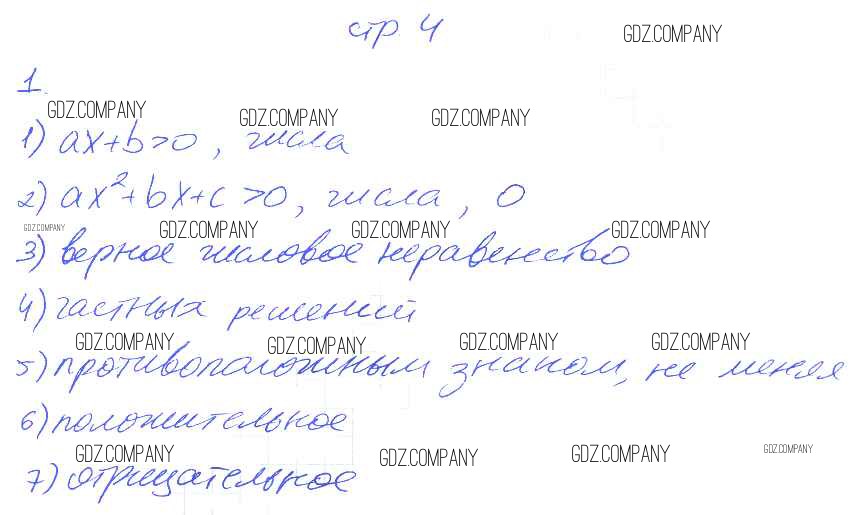 стр 4
GDZ.COMPANY
1.
GDZ.COMPANY GDZ.COMPANY GDZ.COMPANY
1) ax+b>0, числа
2) ax²+bx+c>0, числа, 0
GDZ.COMPANY GDZ.COMPANY GDZ.COMPANY GDZ.COMPANY
3) верное числовое неравенство
4) частных решений
GDZ.COMPANY GDZ.COMPANY GDZ.COMPANY GDZ.COMPANY
5) противоположным знаком, не меняя
6) положительное
GDZ.COMPANY GDZ.COMPANY GDZ.COMPANY GDZ.COMPANY
7) отрицательное